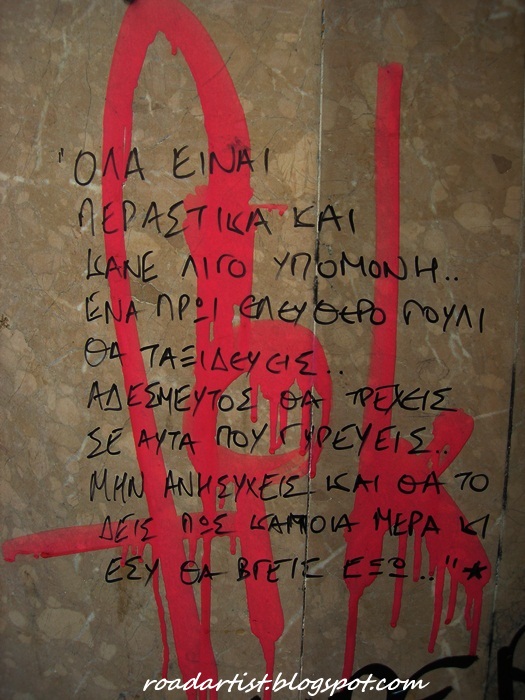 "ΟΛΑ ΕΙΝΑΙ
ΠΕΡΑΣΤΙΚΑ ΚΑΙ
ΚΑΝΕ ΛΙΓΟ ΥΠΟΜΟΝΗ..
ΕΝΑ ΠΡΩΙ ΕΛΕΥΘΕΡΟ ΠΟΥΛΙ
ΘΑ ΤΑΞΙΔΕΥΕΙΣ..
ΑΔΕΣΜΕΥΤΟΣ ΘΑ ΤΡΕΧΕΙΣ
ΣΕ ΑΥΤΑ ΠΟΥ ΓΥΡΕΥΕΙΣ..
ΜΗΝ ΑΝΗΣΥΧΕΙΣ ΚΑΙ ΘΑ ΤΟ
ΔΕΙΣ ΠΩΣ ΚΑΠΟΙΑ ΜΕΡΑ ΚΙ
ΕΣΥ ΘΑ ΒΓΕΙΣ ΕΞΩ.."*
roadartist.blogspot.com